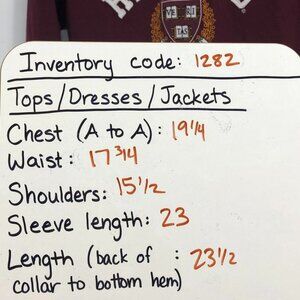 VE RI
TAS
Inventory code: 1282
Tops/Dresses/Jackets
Chest (A to A): 19 1/4
Waist: 17 3/4
Shoulders: 15 1/2
Sleeve length: 23
Length (back of : 23 1/2
collar to bottom hem)